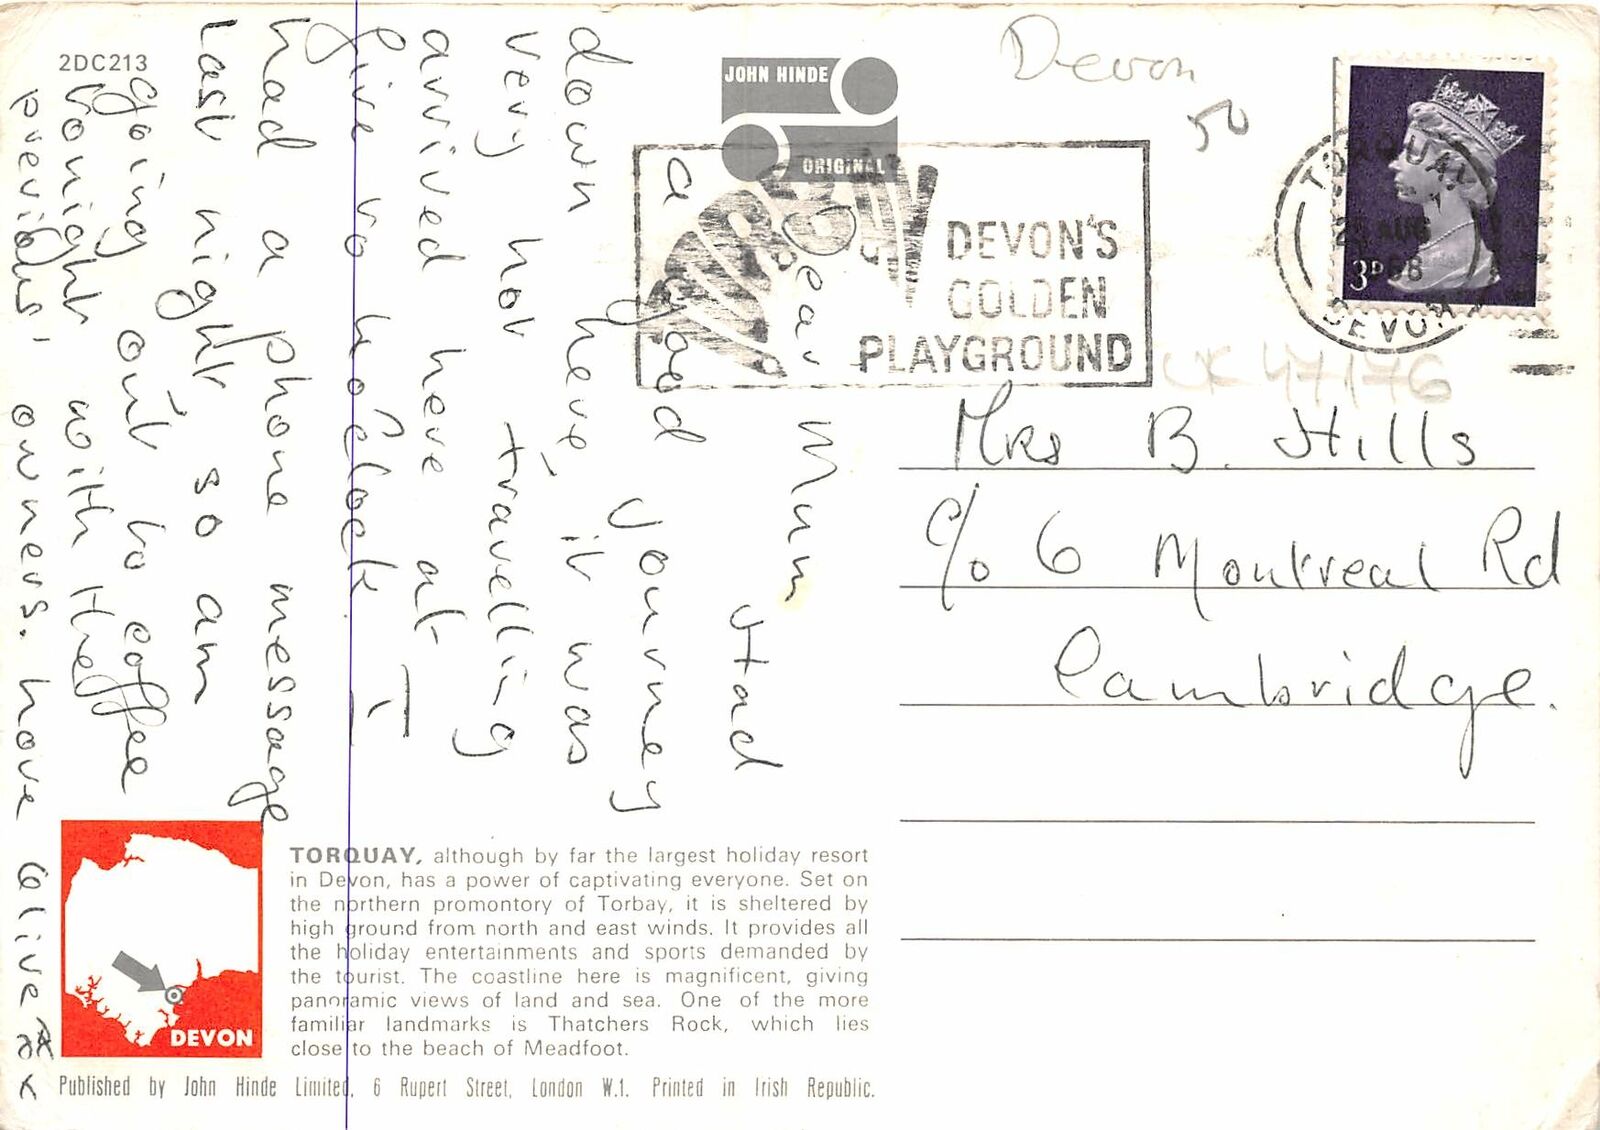 2DC213
JOHN HINDE
ORIGINAL
Devon
50
TORQUAY
DEVON'S
GOLDEN
PLAYGROUND
TORQUAY
AUG
DEVON
3D
UK 47176
Dear Mum
Had
a good journey
down here, it was
very hot travelling
arrived here at
five to ho clock. I
had a phone message
last night so am
going out to coffee
tonight with the
previous owners. love Clive
xxx
Mrs B. Hills
c/o 6 Montreal Rd
Cambridge.
DEVON
TORQUAY, although by far the largest holiday resort
in Devon, has a power of captivating everyone. Set on
the northern promontory of Torbay, it is sheltered by
high ground from north and east winds. It provides all
the holiday entertainments and sports demanded by
the tourist. The coastline here is magnificent, giving
panoramic views of land and sea. One of the more
familiar landmarks is Thatchers Rock, which lies
close to the beach of Meadfoot.
Published by John Hinde Limited, 6 Rupert Street, London W.1. Printed in Irish Republic.